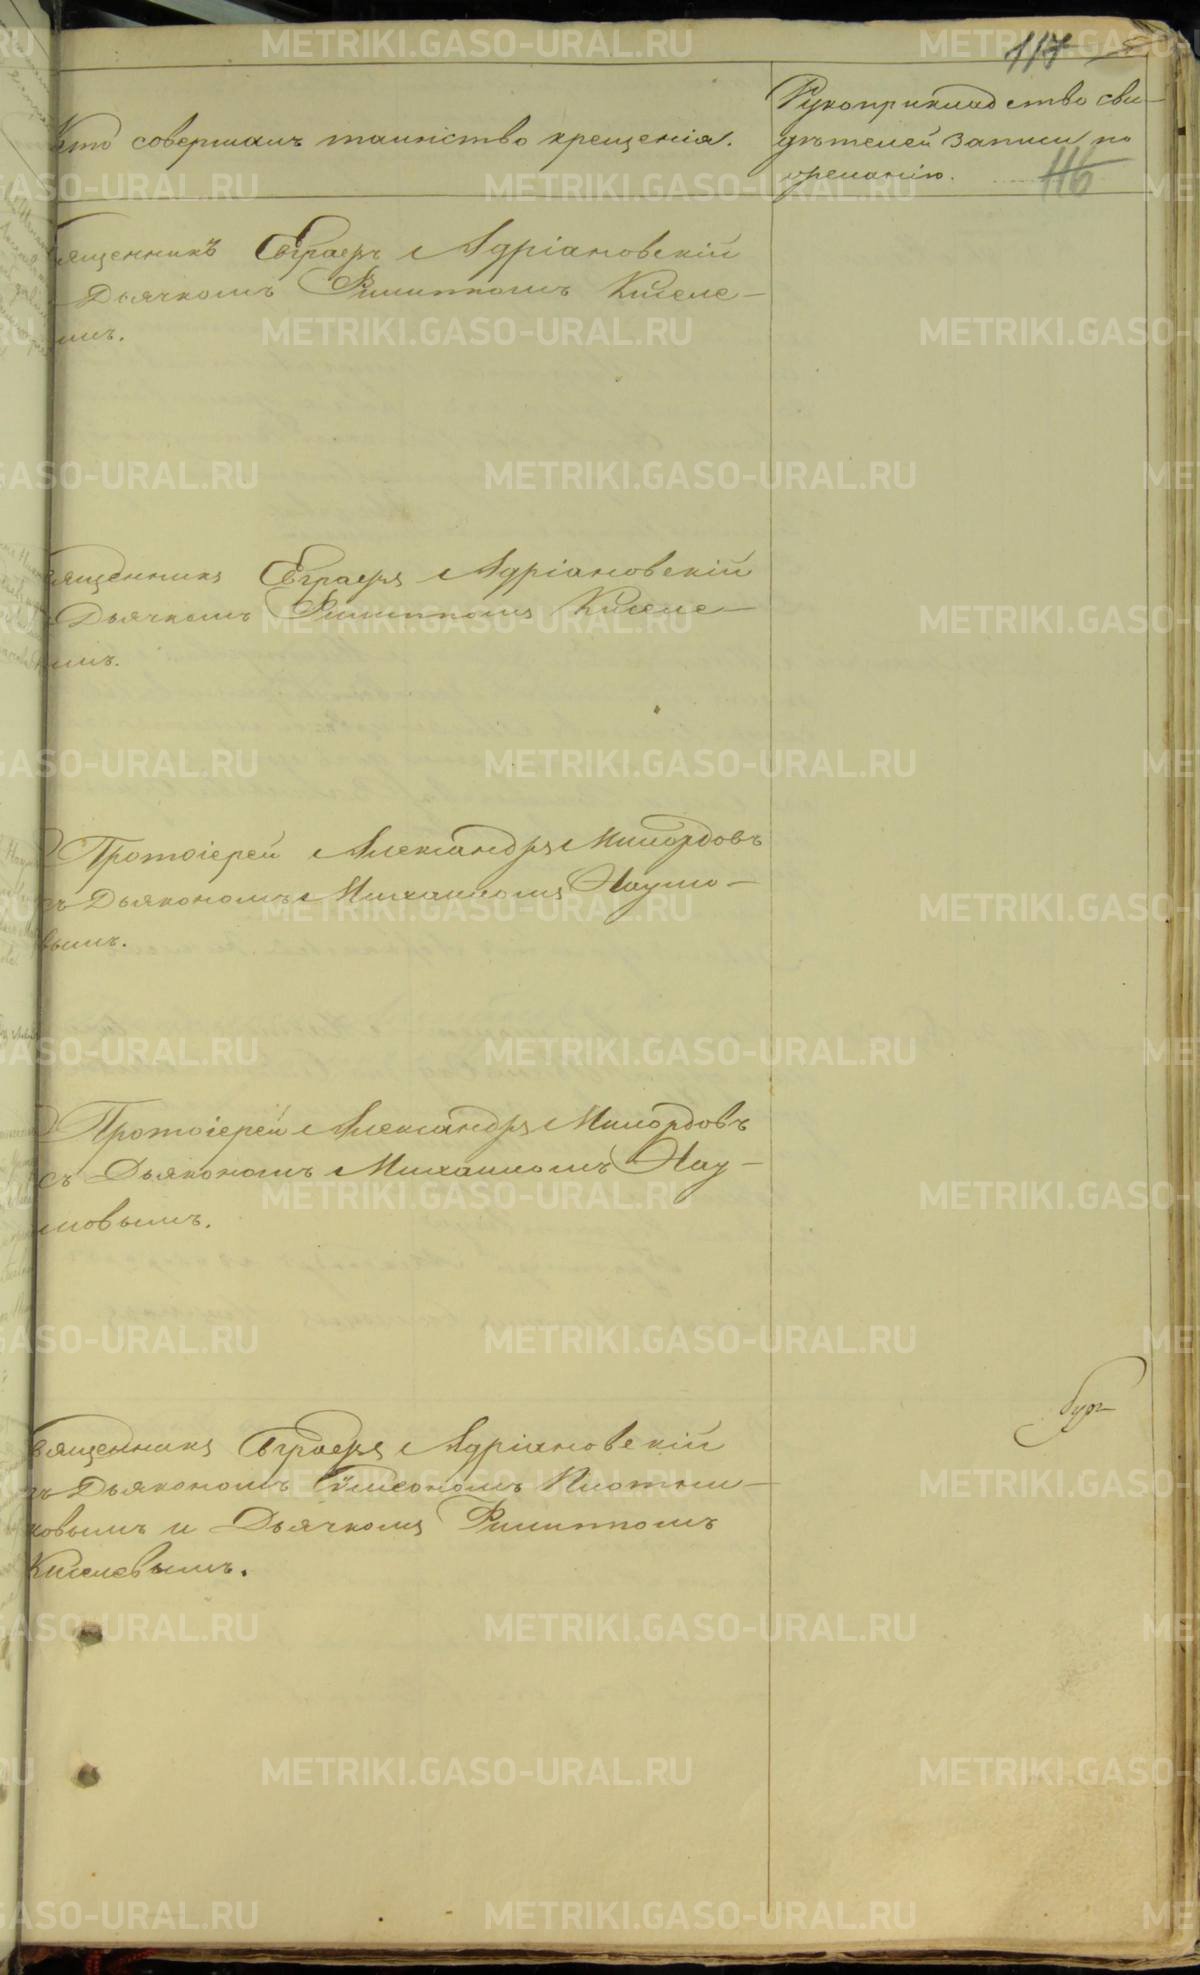 117
Кто совершалъ таинство крещенія.
Рукоприкладство сви-
дѣтелей записи по
желанію.
116
Священникъ Евграфъ Адріановскій
Дьячкомъ Филиппомъ Киселе-
вымъ.
Священникъ Евграфъ Адріановскій
Дьячкомъ Филиппомъ Киселе-
вымъ.
Протоіерей Александръ Милордовъ
съ Дьякономъ Михаиломъ Наумо-
вымъ.
Протоіерей Александръ Милордовъ
съ Дьякономъ Михаиломъ Нау-
мовымъ.
Священникъ Евграфъ Адріановскій
съ Дьякономъ Сѵмеономъ Плотни-
ковымъ и Дьячкомъ Филиппомъ
Киселевымъ.
METRIKI.GASO-URAL.RU